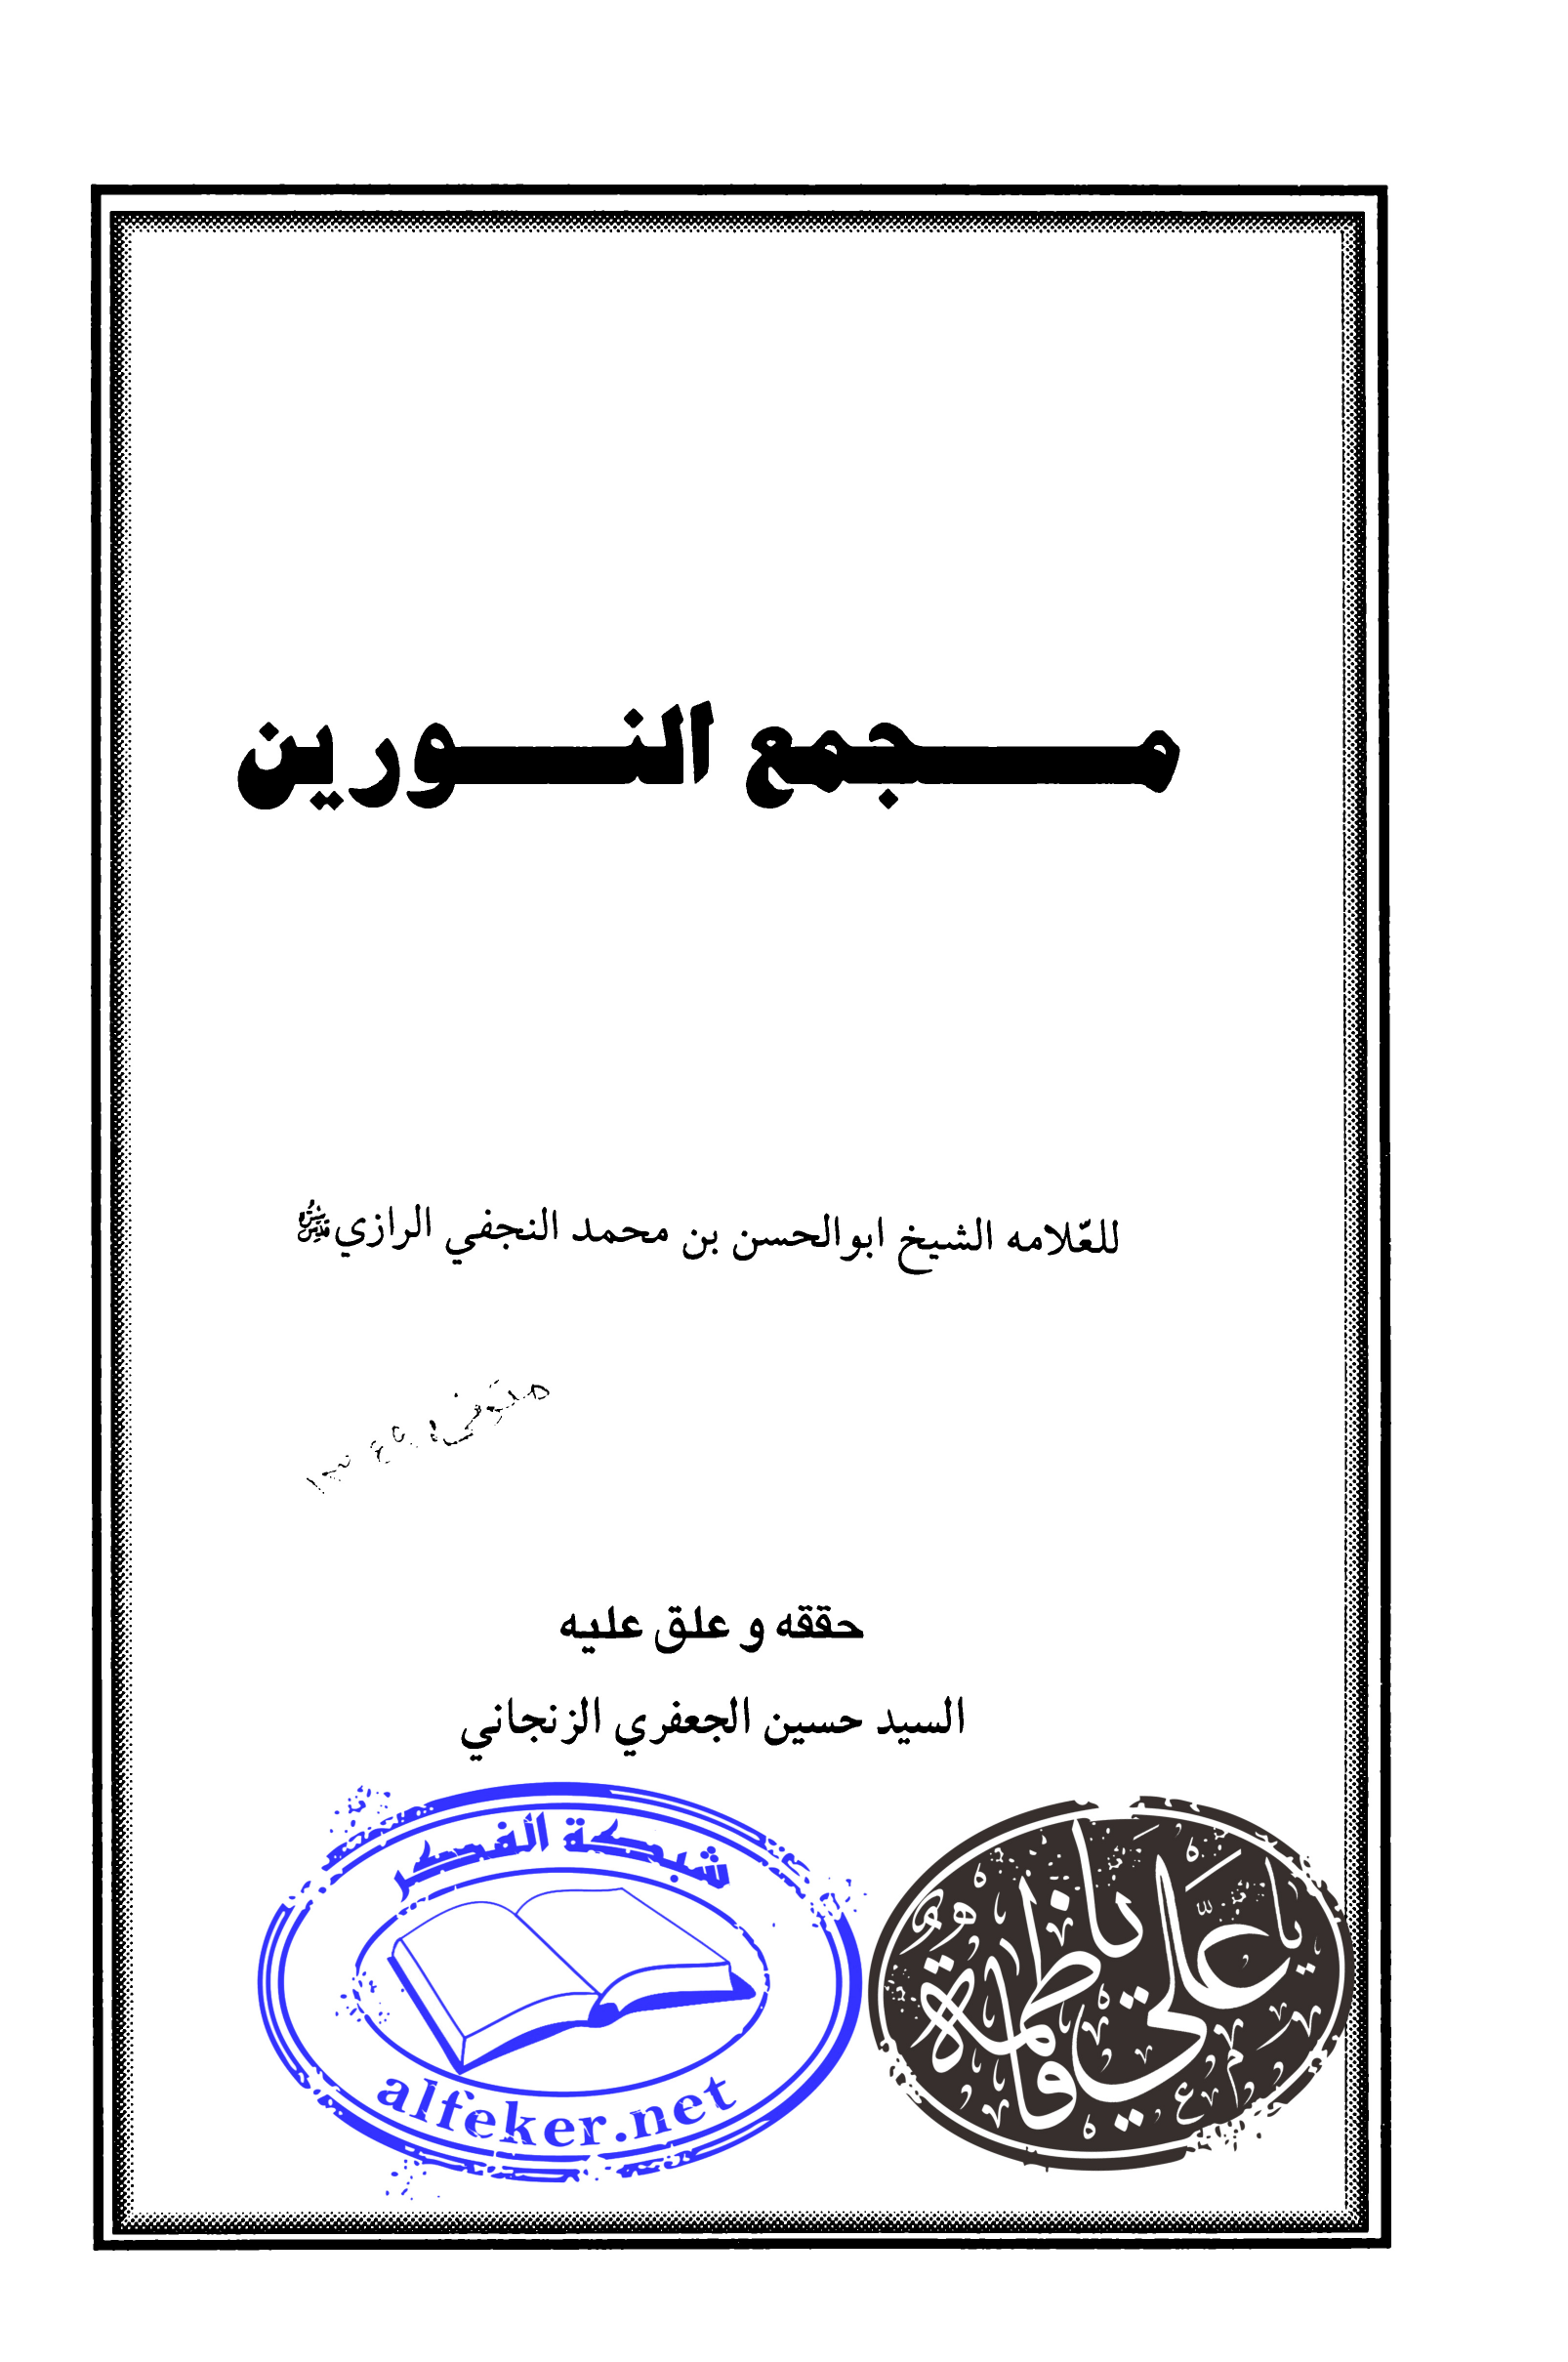 مجمع النورين
للعّلامه الشيخ ابوالحسن بن محمد النجفي الرازي قدس سره
متوفى ١٣٤٩
حققه و علق عليه
السيد حسين الجعفري الزنجاني
شبكة الفكر
alfeker.net
يا علي
يا فاطمة